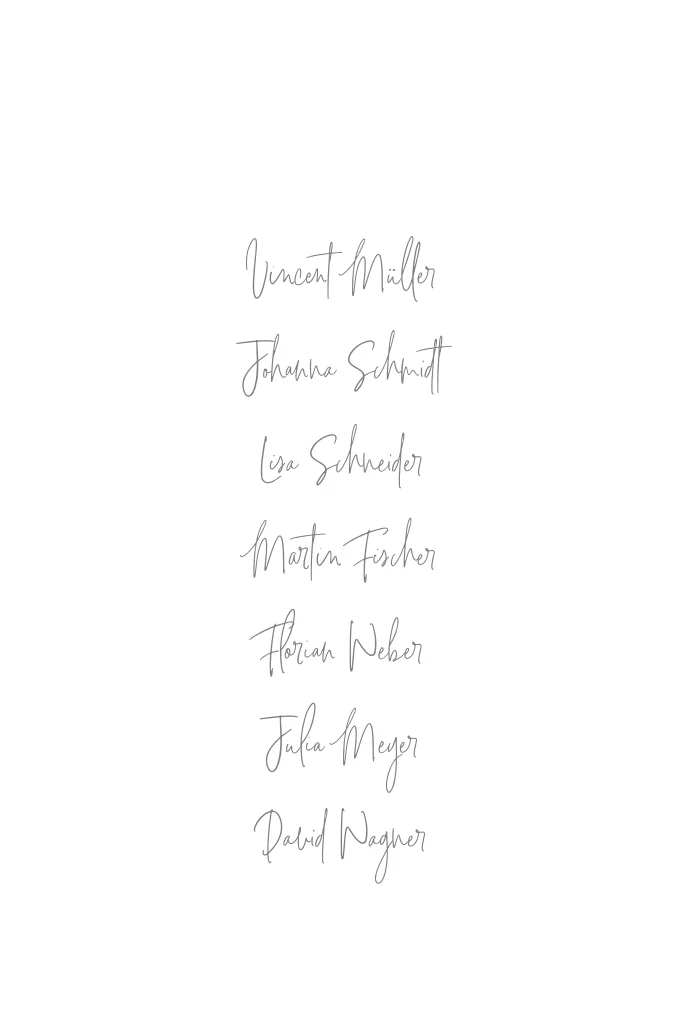 Vincent Müller
Johanna Schmidt
Lisa Schneider
Martin Fischer
Florian Weber
Julia Meyer
David Wagner